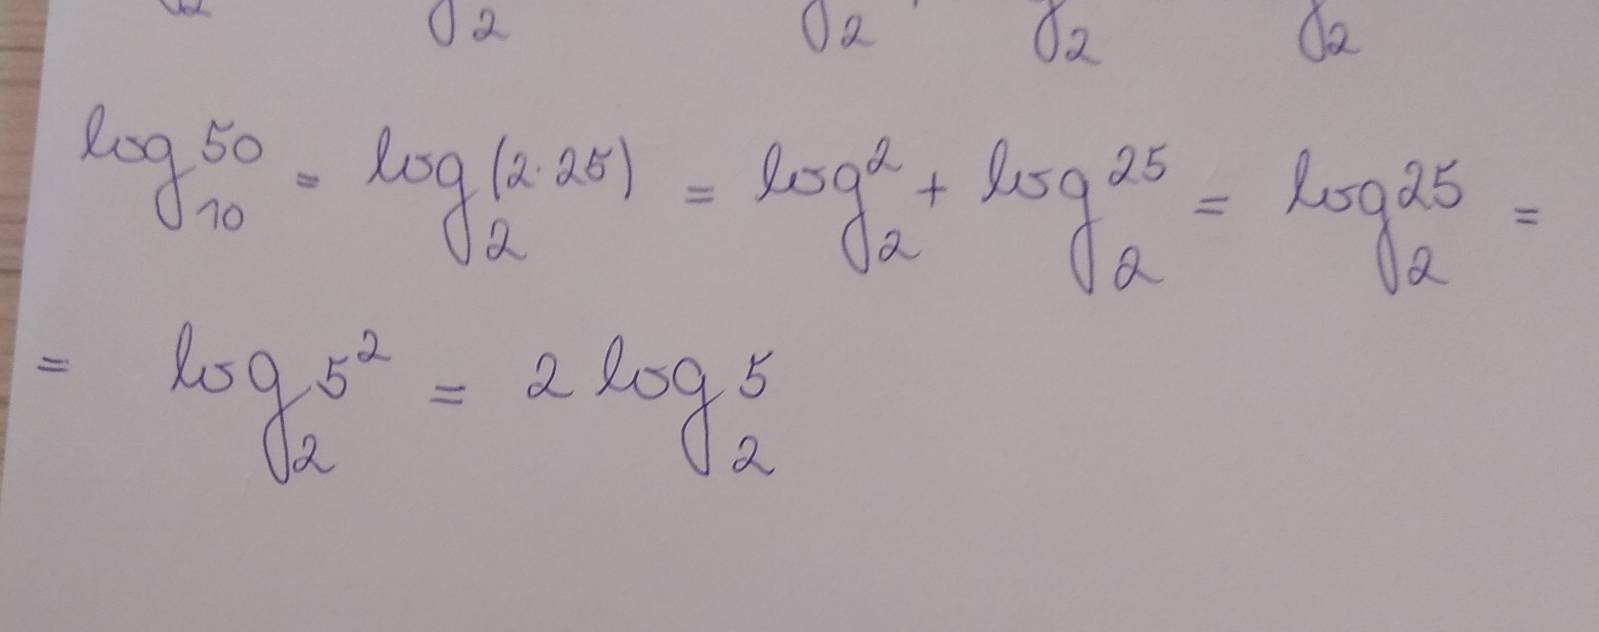 2 2 2 2
log₁₀ 50 = log₂ (2·25) = log₂ 2 + log₂ 25 = log₂ 25 =
= log₂ 5² = 2 log₂ 5